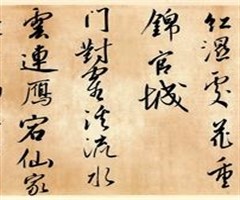 紅濕處花重
錦官城
門對鶴溪流水
雲連雁宕仙家